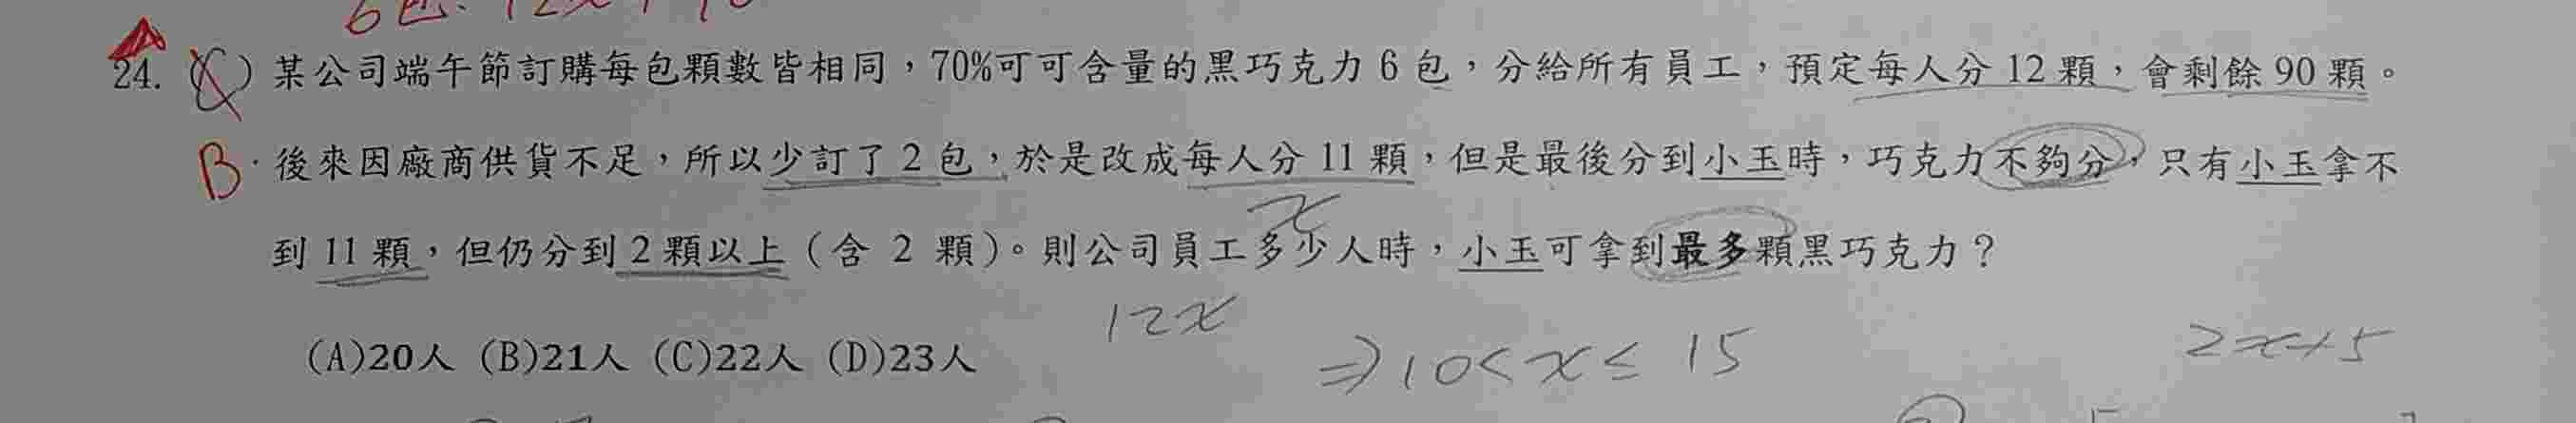 6包：12x+90
24. (C) 某公司端午節訂購每包顆數皆相同，70%可可含量的黑巧克力 6 包，分給所有員工，預定每人分 12 顆，會剩餘 90 顆。
B 後來因廠商供貨不足，所以少訂了 2 包，於是改成每人分 11 顆，但是最後分到小玉時，巧克力不夠分，只有小玉拿不
x
到 11 顆，但仍分到 2 顆以上（含 2 顆）。則公司員工多少人時，小玉可拿到最多顆黑巧克力？
12x
(A)20人 (B)21人 (C)22人 (D)23人
⇒10<x≤15
2x+5